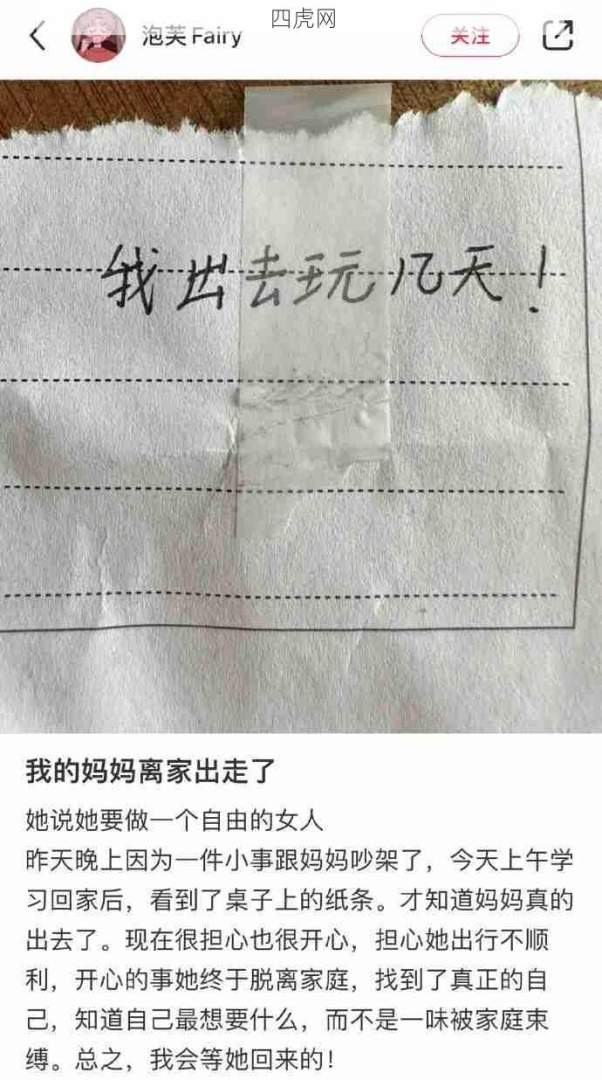 四虎网
泡芙Fairy
关注
我出去玩几天！
我的妈妈离家出走了
她说她要做一个自由的女人
昨天晚上因为一件小事跟妈妈吵架了，今天上午学
习回家后，看到了桌子上的纸条。才知道妈妈真的
出去了。现在很担心也很开心，担心她出行不顺
利，开心的事她终于脱离家庭，找到了真正的自
己，知道自己最想要什么，而不是一味被家庭束
缚。总之，我会等她回来的！